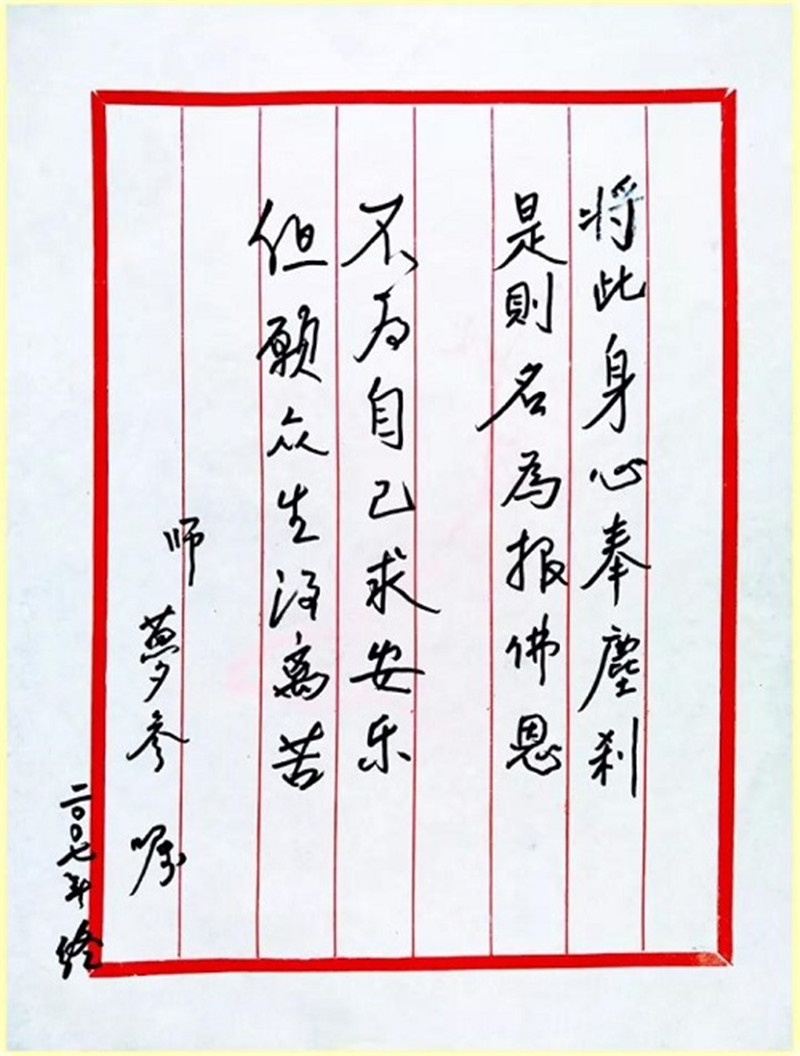 将此身心奉塵刹
是則名為报佛恩
不为自己求安乐
但願众生得离苦
师
夢参嘱
二〇〇七年终